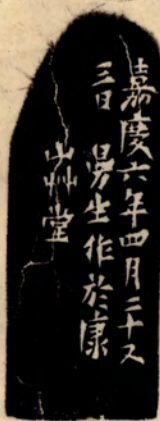 嘉慶六年四月二十又
三日 曼生作於康
山艸堂